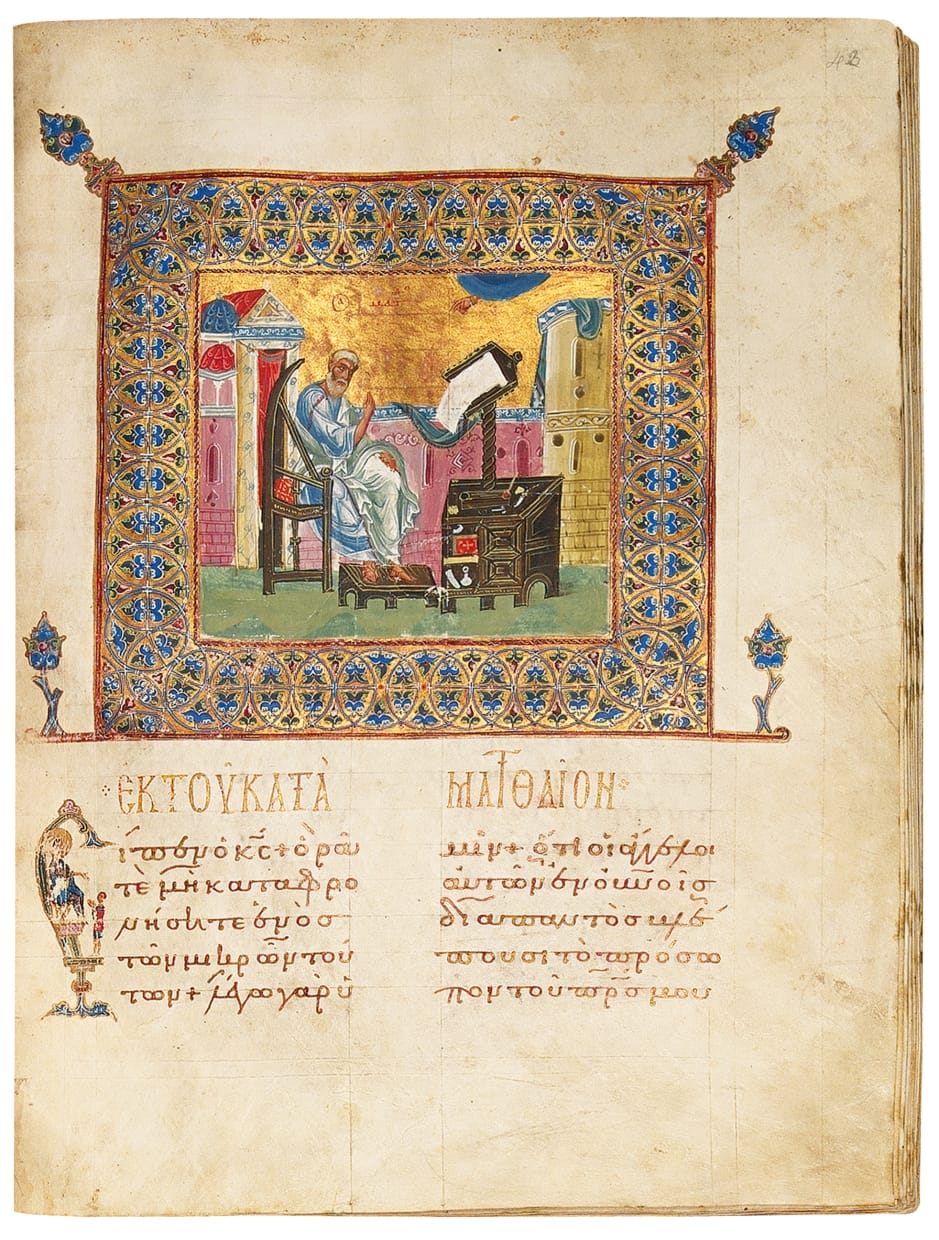 43
ΕΚ ΤΟΥ ΚΑΤΑ
Εἶπεν ὁ κ̅ς̅ + ὁρᾶ
τε μὴ καταφρο
νήσητε ἑνὸς
τῶν μικρῶν τού
των + λέγω γὰρ ὑ
ΜΑΤΘΑΙΟΝ
μῖν + ὅτι οἱ ἄγγελοι
αὐτῶν ἐν οὐ̅ν̅οις
διαπαντὸς βλέ
πουσι τὸ πρόσω
πον τοῦ π̅ρ̅ς̅ μου